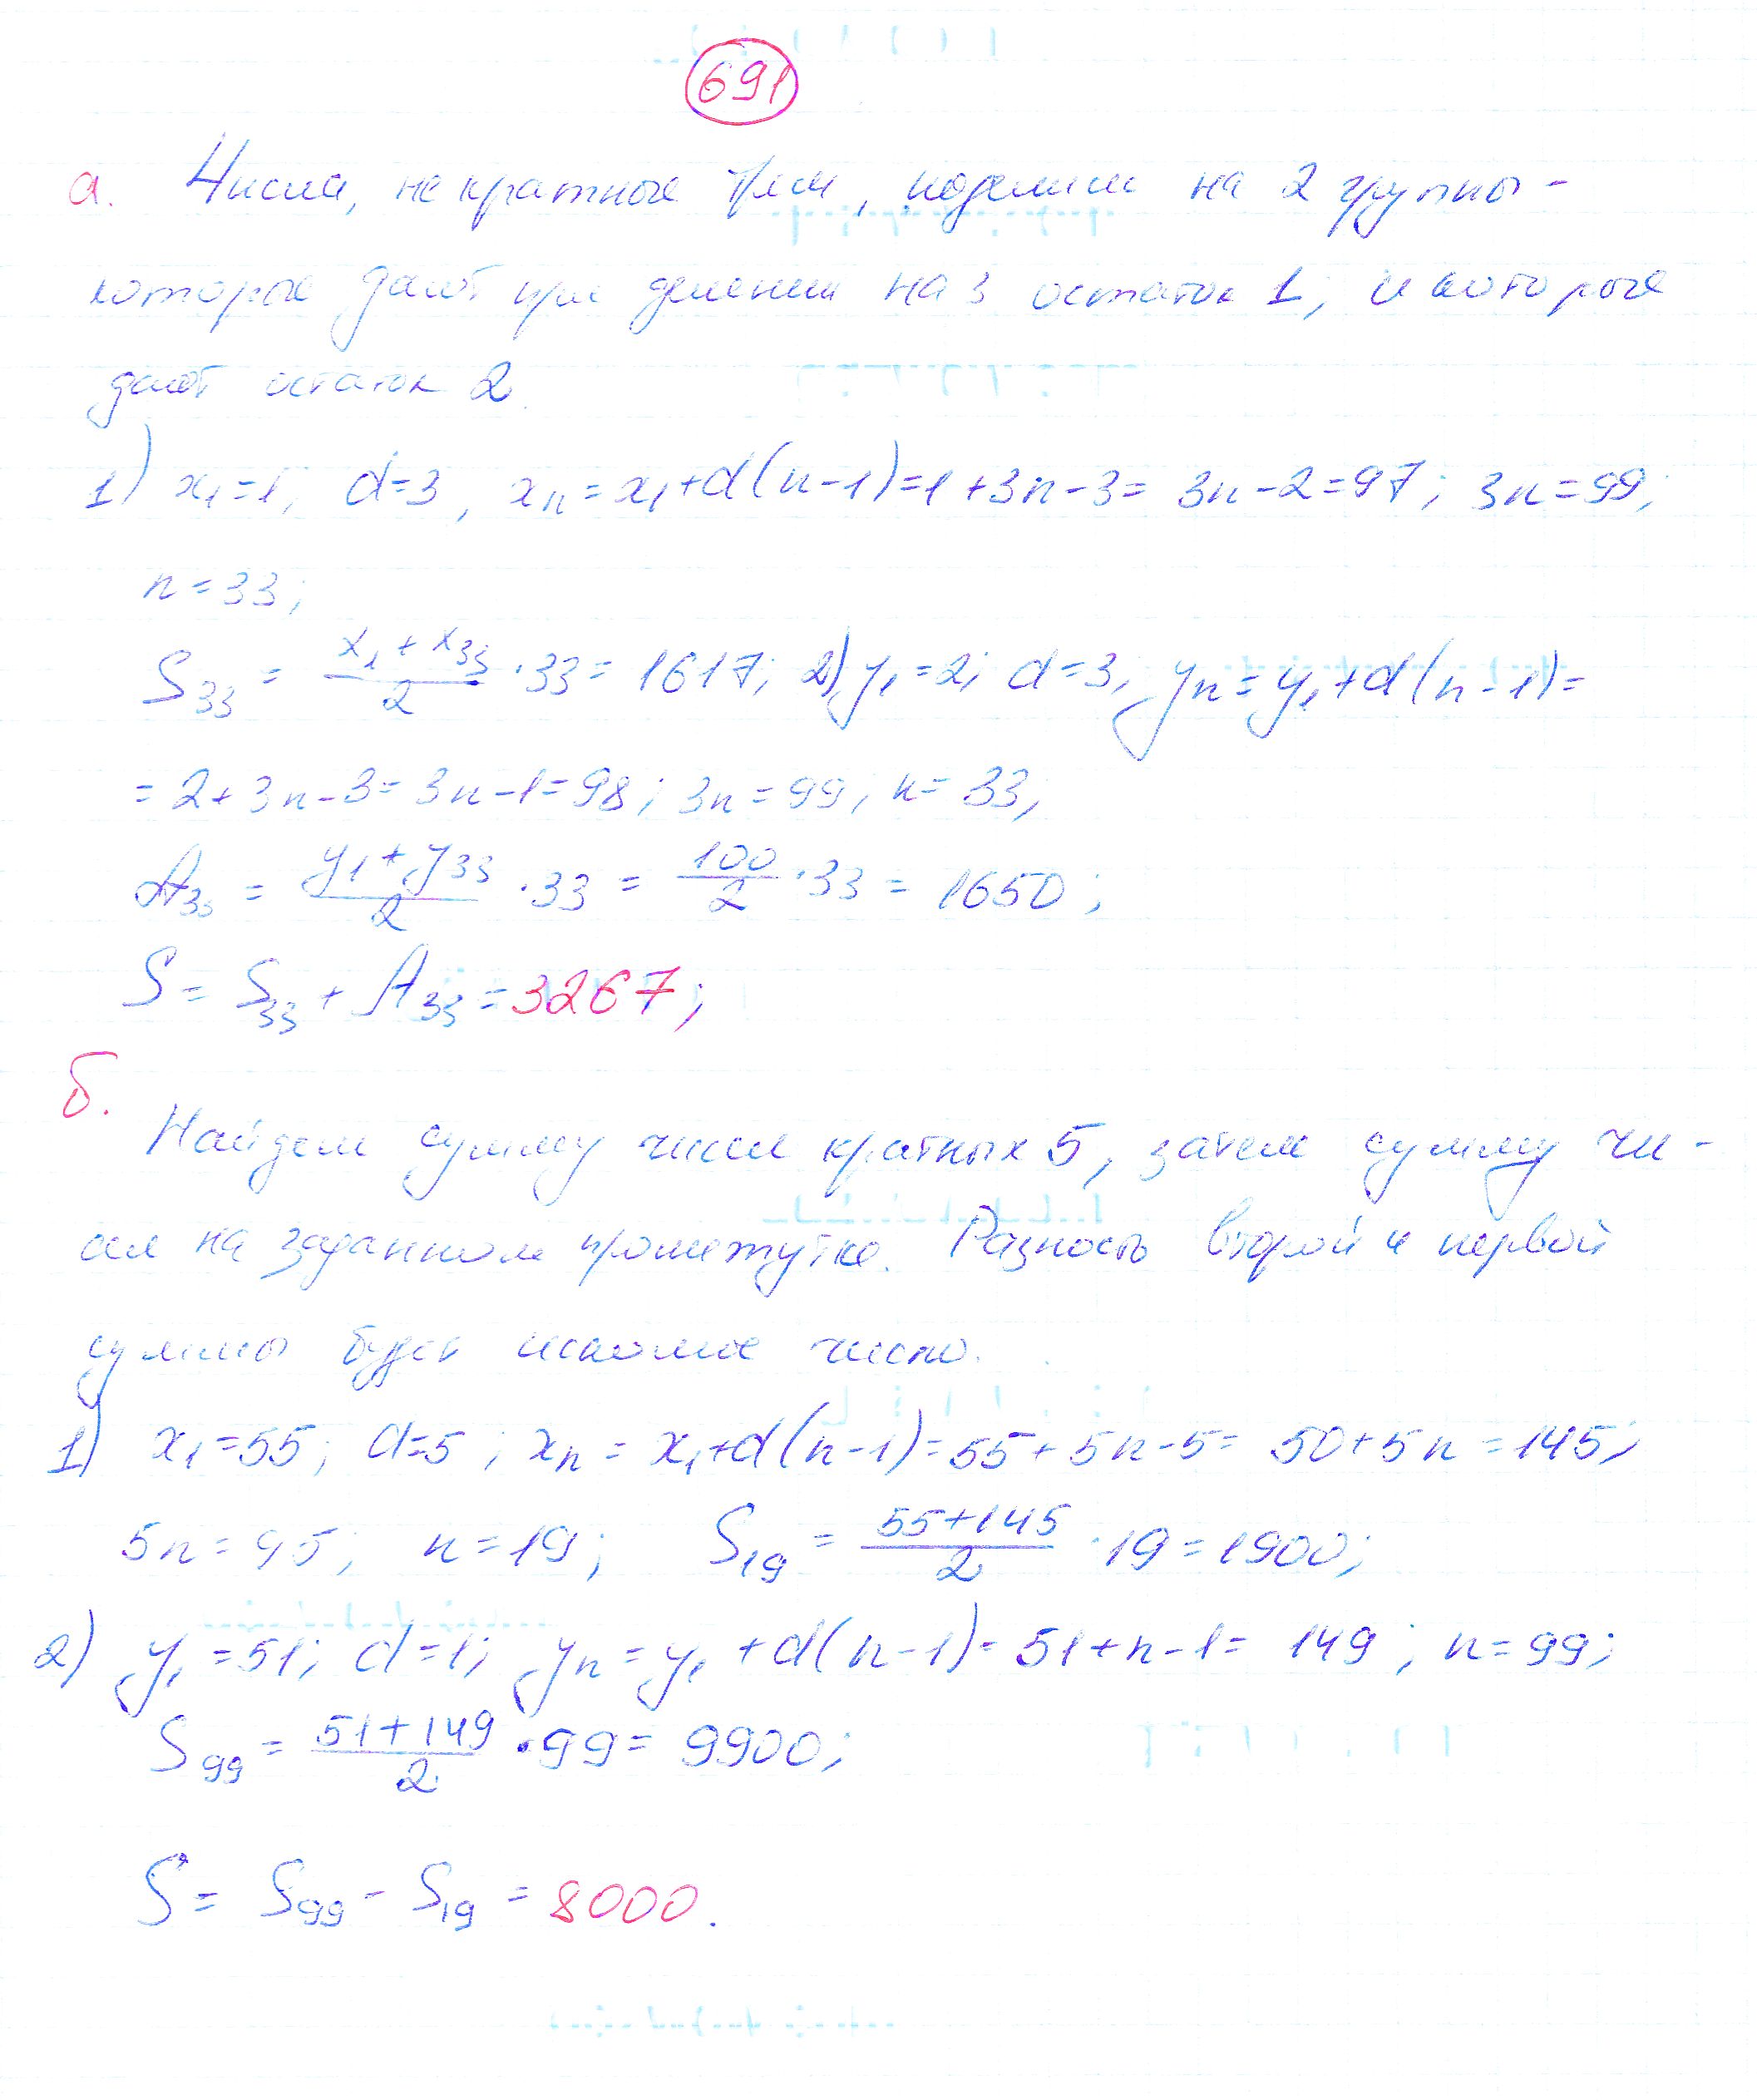 691
а. Числа, не кратные трем, поделим на 2 группы -
которые дают при делении на 3 остаток 1, и которые
дают остаток 2.
1) x₁=1; d=3, xₙ=x₁+d(n-1)=1+3n-3= 3n-2=97; 3n=99;
n=33;
S₃₃ = (x₁+x₃₃)/2 ·33= 1617; 2) y₁=2; d=3, yₙ=y₁+d(n-1)=
=2+3n-3=3n-1=98; 3n=99; n=33,
A₃₃ = (y₁+y₃₃)/2 ·33 = 100/2 ·33 = 1650;
S= S₃₃+A₃₃=3267;
б.
Найдем сумму чисел кратных 5, затем сумму чи-
сел на заданном промежутке. Разность второй и первой
суммы будет искомое число.
1) x₁=55; d=5; xₙ= x₁+d(n-1)=55+5n-5= 50+5n=145;
5n=95; n=19; S₁₉ = (55+145)/2 ·19=1900;
2) y₁=51; d=1; yₙ=y₁+d(n-1)=51+n-1= 149; n=99;
S₉₉= (51+149)/2 ·99= 9900;
S= S₉₉-S₁₉=8000.